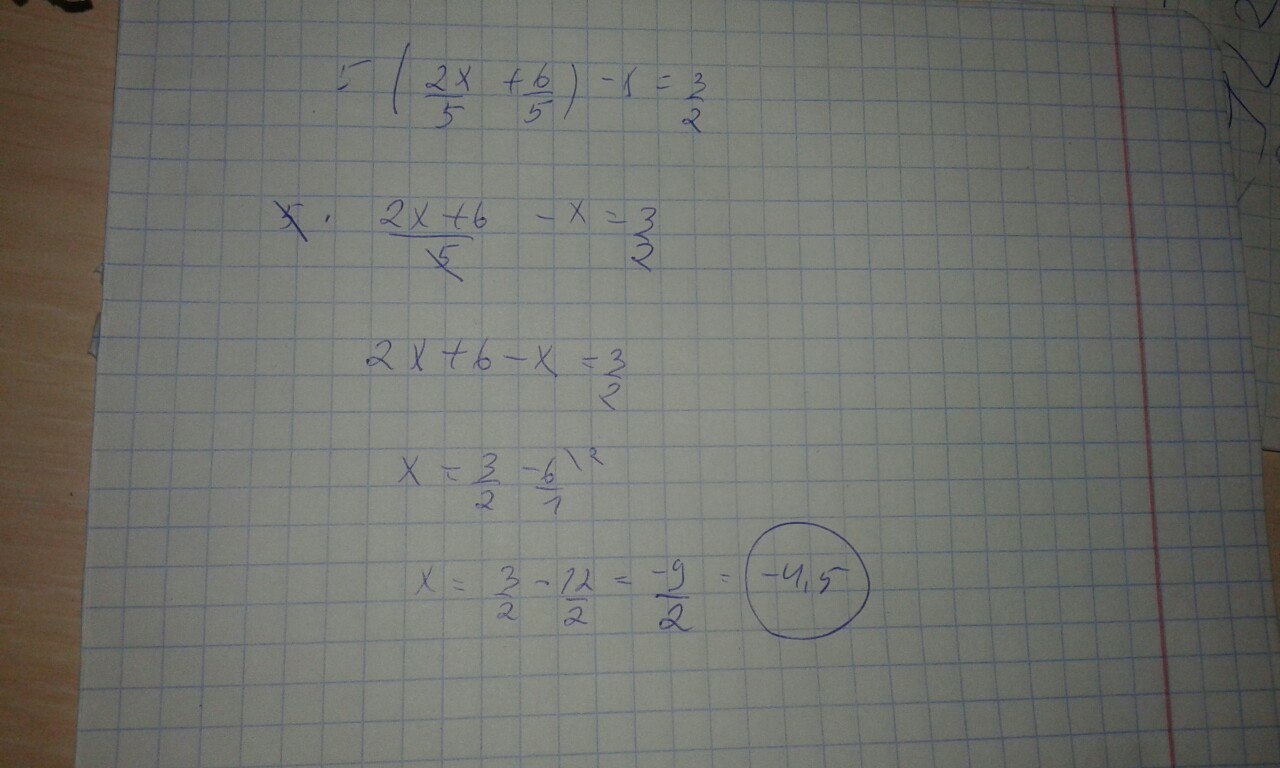 5 (2x/5 + 6/5) - x = 3/2
5 · (2x + 6)/5 - x = 3/2
2x + 6 - x = 3/2
x = 3/2 - 6/1 \2
x = 3/2 - 12/2 = -9/2 = -4,5